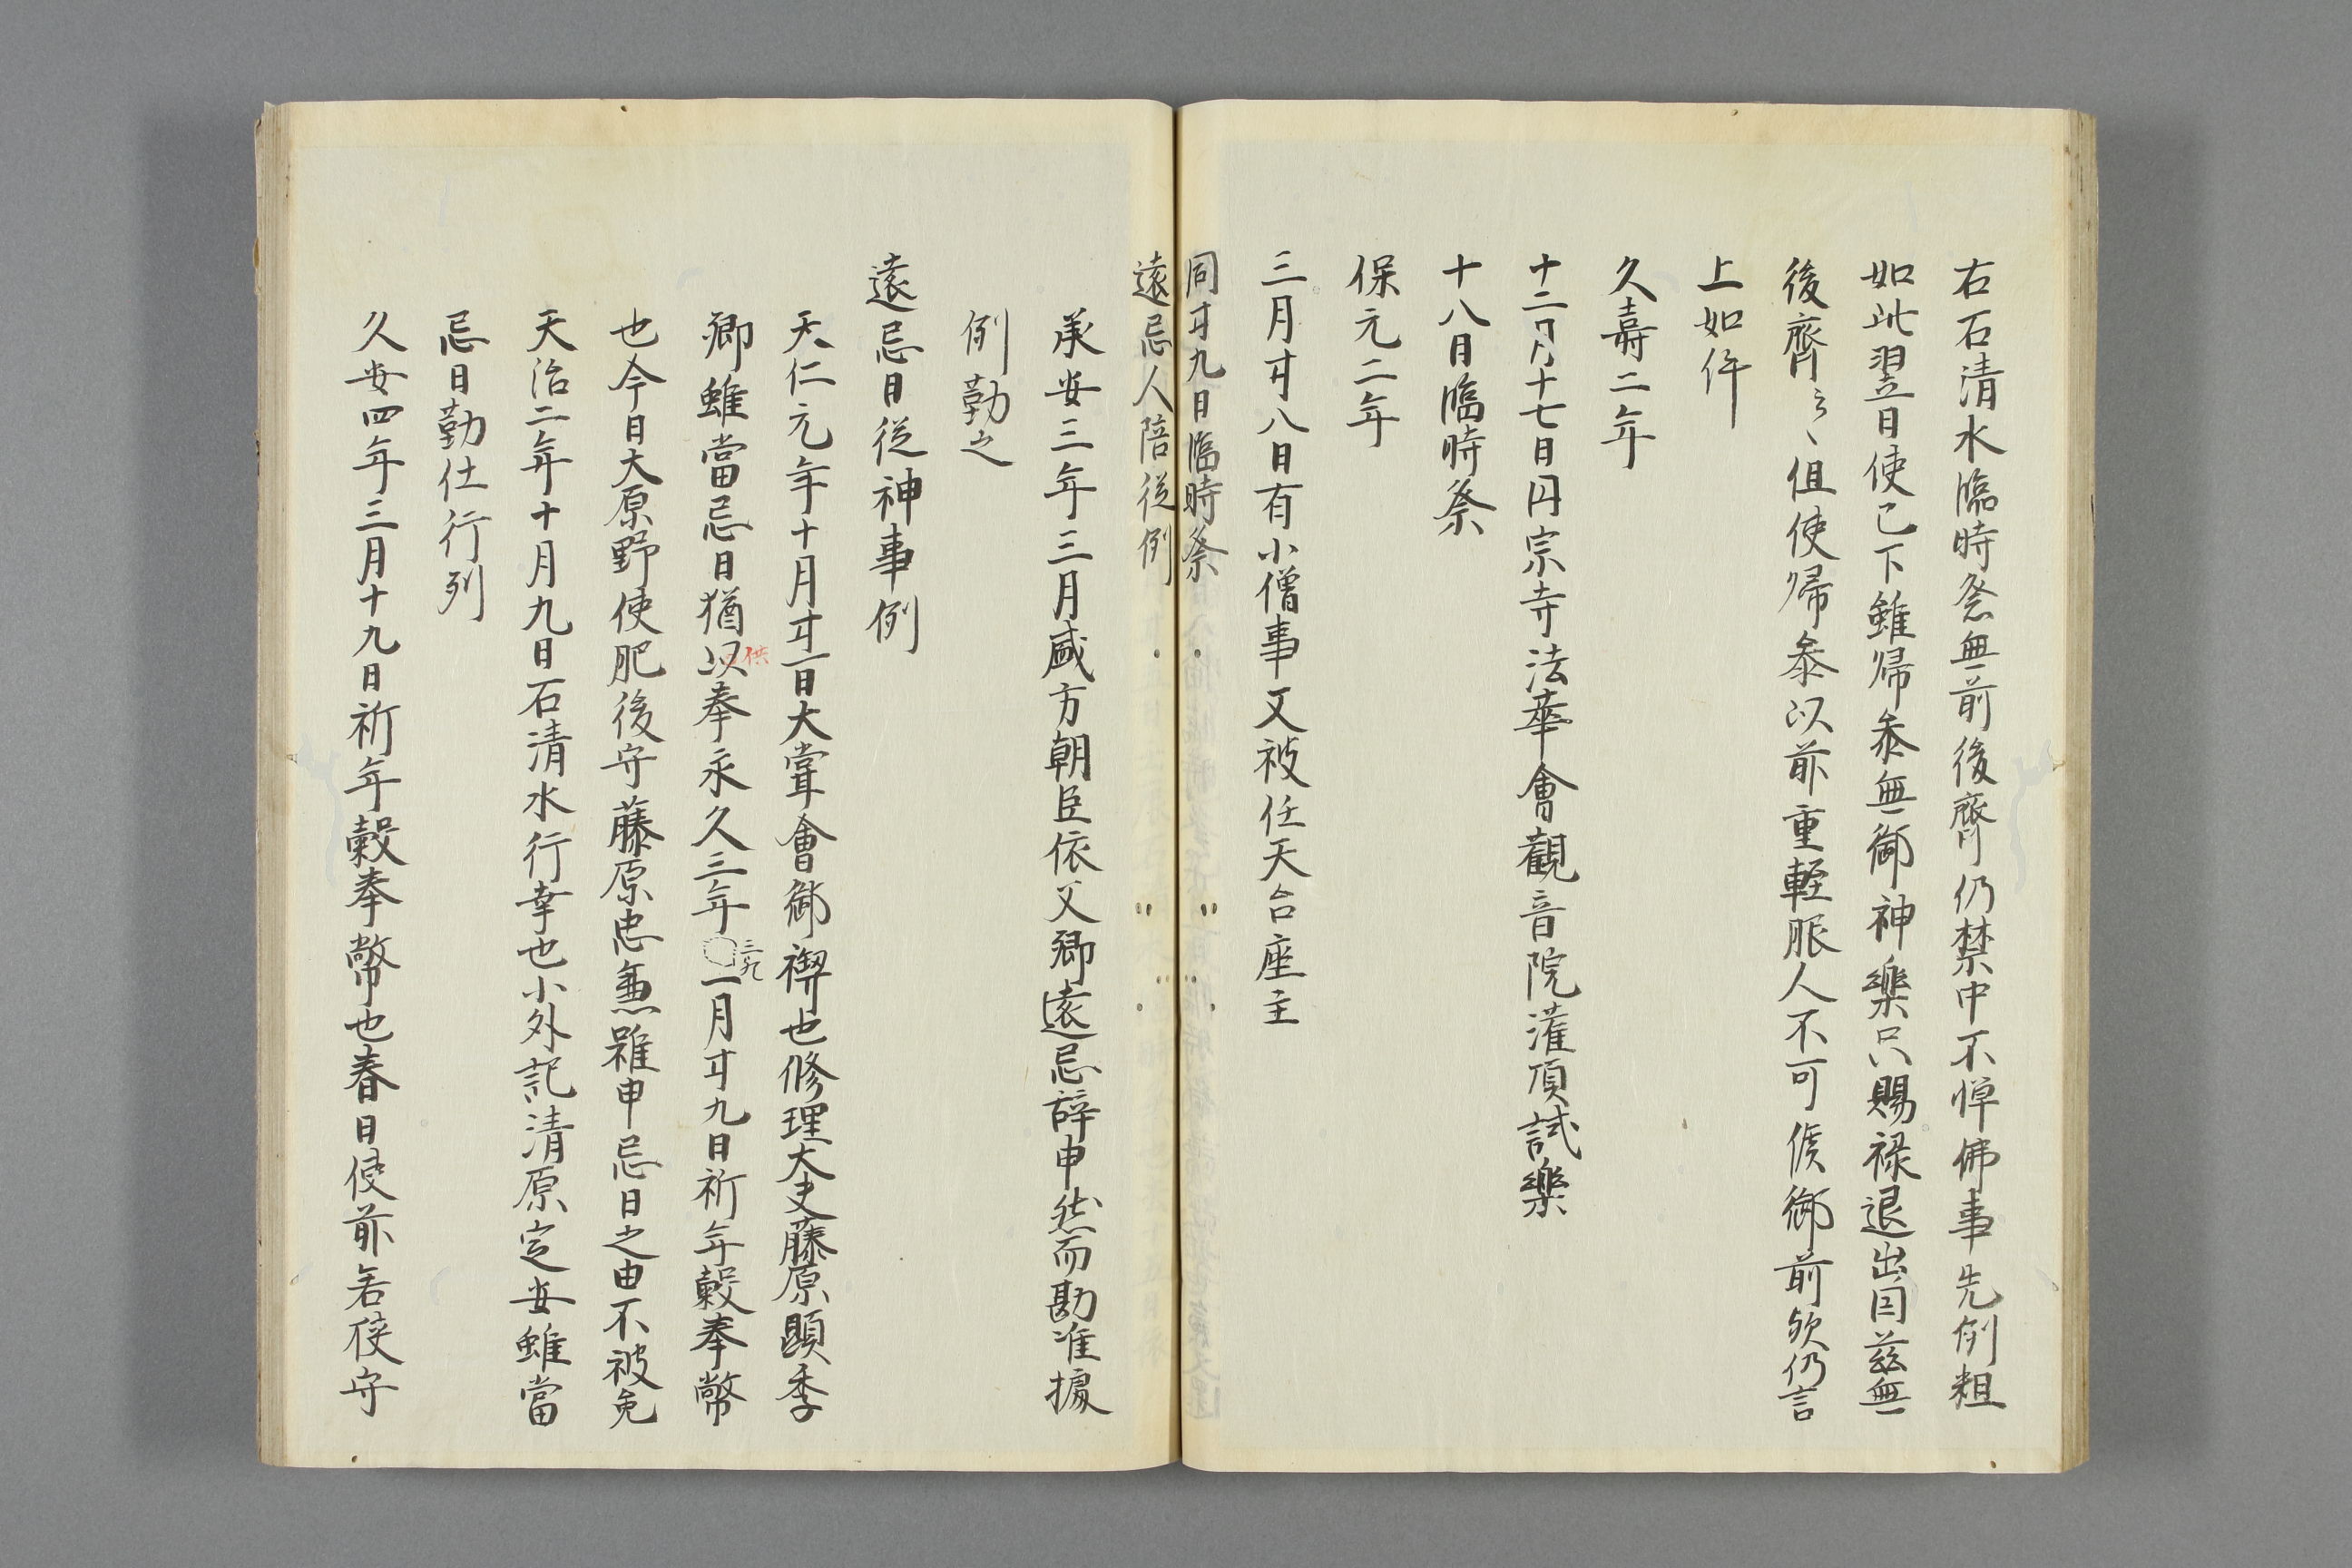 右石清水臨時祭無前後齊仍禁中不憚佛事先例粗
如此翌日使已下雖帰参無御神樂只賜禄退出因茲無
後齊云々但使帰参以前重軽服人不可候御前欤仍言
上如件
久壽二年
十二月十七日円宗寺法華會觀音院灌頂試樂
十八日臨時祭
保元二年
三月廿八日有小僧事又被任天台座主
同廿九日臨時祭
遠忌人陪従例
承安三年三月盛方朝臣依父卿遠忌辞申然而勘准據
例勤之
遠忌日従神事例
天仁元年十月廿一日大嘗會御禊也修理大夫藤原顕季
卿雖當忌日猶以供奉永久三年三九一月廿九日祈年穀奉幣
也今日大原野使肥後守藤原忠兼雖申忌日之由不被免
天治二年十月九日石清水行幸也小外記清原定安雖當
忌日勤仕行列
久安四年三月十九日祈年穀奉幣也春日使前若狭守